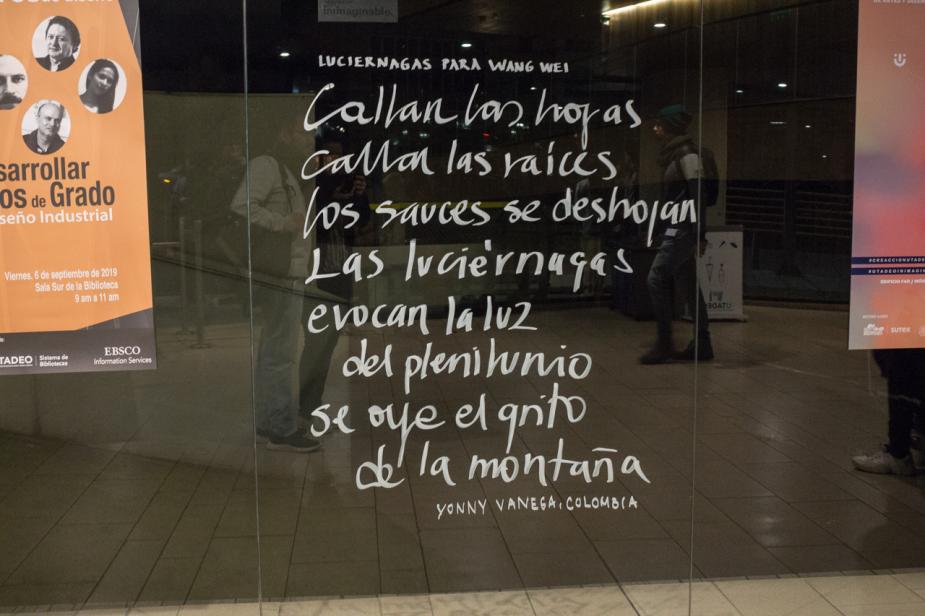 inimaginable.
LUCIERNAGAS PARA WANG WEI
Callan las hojas
callan las raíces
los sauces se deshojan
Las luciérnagas
evocan la luz
del plenilunio
se oye el grito
de la montaña
YONNY VANEGA, COLOMBIA
sarrollar
os de Grado
seño Industrial
Viernes, 6 de septiembre de 2019
Sala Sur de la Biblioteca
9 am a 11 am
TADEO
Sistema de
Bibliotecas
EBSCO
Information Services
#CREACCIONUTADE
#UTADEOINIMAGIN